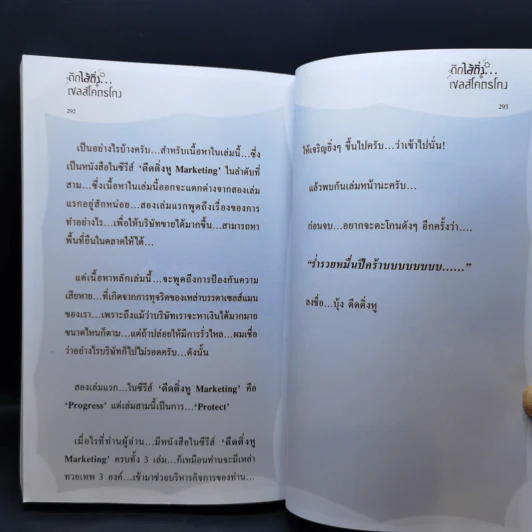 ดีกไส้ติ่ง...
เซลส์โคตรโกง
292
เป็นอย่างไรบ้างครับ...สำหรับเนื้อหาในเล่มนี้...ซึ่ง
เป็นหนังสือในซีรีส์ ‘ดีดติ่งหู Marketing’ ในลำดับที่
สาม...ซึ่งเนื้อหาในเล่มนี้ออกจะแตกต่างจากสองเล่ม
แรกอยู่สักหน่อย...สองเล่มแรกพูดถึงเรื่องของการ
ทำอย่างไร...เพื่อให้บริษัทขายได้มากขึ้น...สามารถหา
พื้นที่ยืนในตลาดให้ได้...
แต่เนื้อหาหลักเล่มนี้...จะพูดถึงการป้องกันความ
เสียหาย...ที่เกิดจากการทุจริตของเหล่าบรรดาเซลส์แมน
ของเรา...เพราะถึงแม้ว่าบริษัทเราจะหาเงินได้มากมาย
ขนาดไหนก็ตาม...แต่ถ้าปล่อยให้มีการรั่วไหล...ผมเชื่อ
ว่าอย่างไรบริษัทก็ไปไม่รอดครับ...ดังนั้น
สองเล่มแรก...ในซีรีส์ ‘ดีดติ่งหู Marketing’ คือ
‘Progress’ แต่เล่มสามนี้เป็นการ...‘Protect’
เมื่อไรที่ท่านผู้อ่าน...มีหนังสือในซีรีส์ ‘ดีดติ่งหู
Marketing’ ครบทั้ง 3 เล่ม...ก็เหมือนท่านจะมีเหล่า
ทวยเทพ 3 องค์...เข้ามาช่วยบริหารกิจการของท่าน...
ดีกไส้ติ่ง...
เซลส์โคตรโกง
293
ให้เจริญยิ่งๆ ขึ้นไปครับ...ว่าเข้าไปนั่น!
แล้วพบกันเล่มหน้านะครับ...
ก่อนจบ...อยากจะตะโกนดังๆ อีกครั้งว่า....
“ร่ำรวยหมื่นปีคร้าบบบบบบบบ......”
ลงชื่อ...บุ้ง ดีดติ่งหู